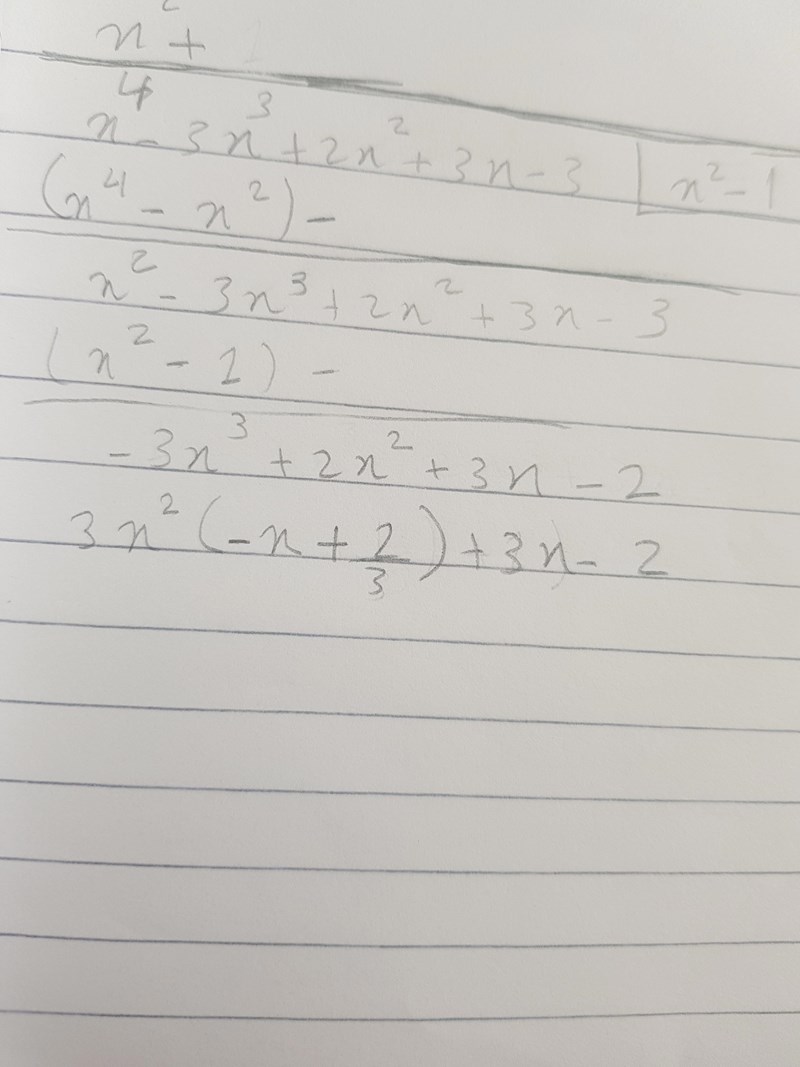 x² +
x⁴ - 3x³ + 2x² + 3x - 3 | x² - 1
(x⁴ - x²) -
x² - 3x³ + 2x² + 3x - 3
(x² - 1) -
- 3x³ + 2x² + 3x - 2
3x² (-x + 2/3) + 3x - 2